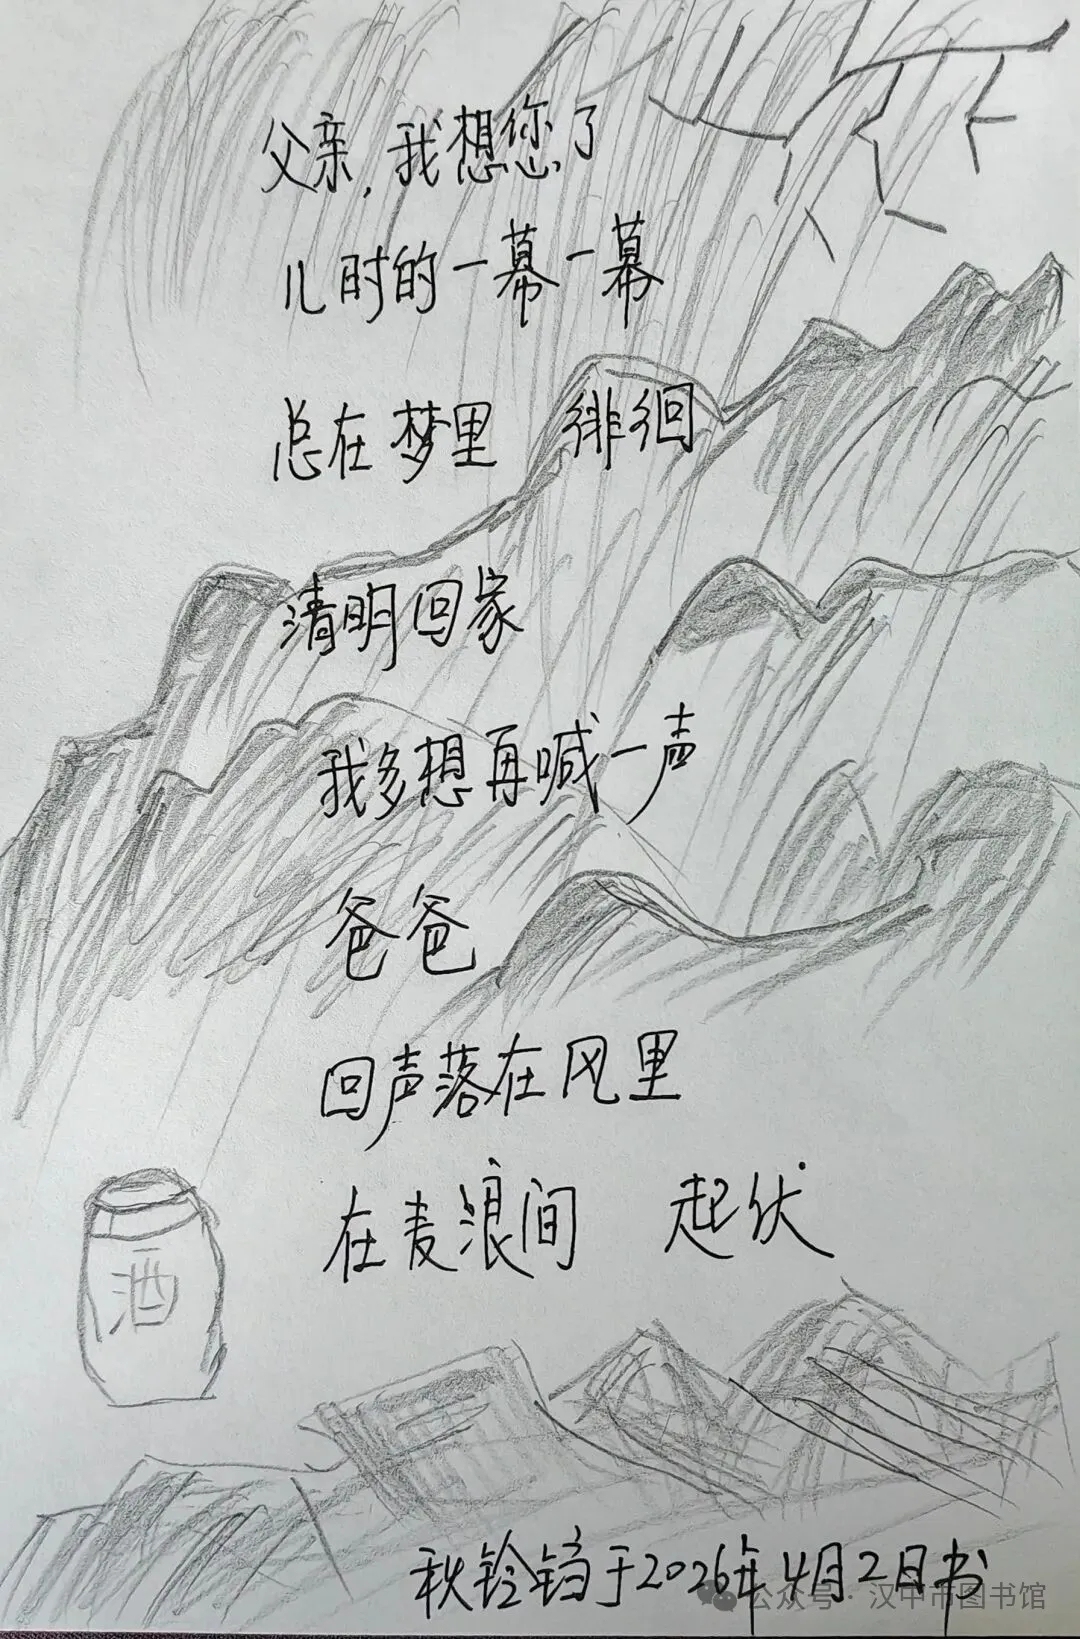 父亲,我想您了
儿时的一幕一幕
总在梦里 徘徊
清明回家
我多想再喊一声
爸爸
回声落在风里
在麦浪间 起伏
酒
秋铃铛于2026年4月2日书
公众号·汉中市图书馆